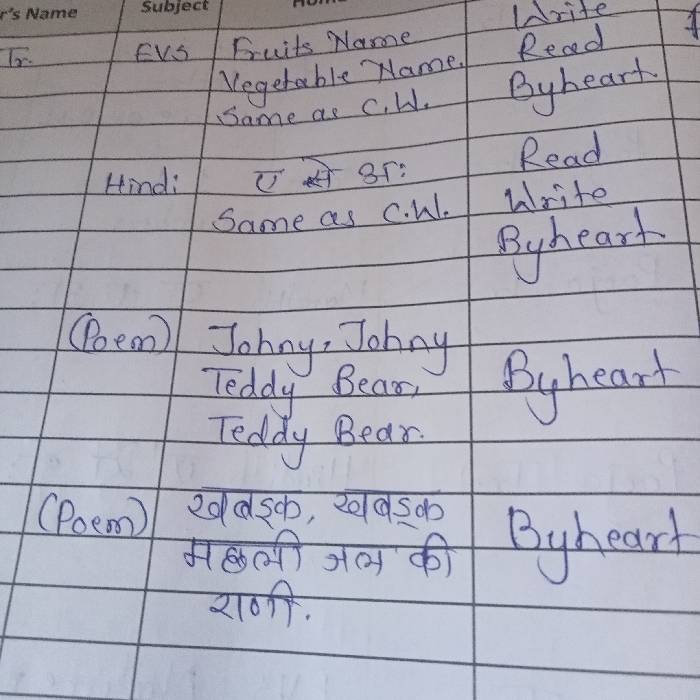 r's Name Subject
Write
Tr. EVS Fruits Name Read
Vegetable Name. Byheart
Same as C.W.
Hindi ए से अः Read
Same as C.W. Write
Byheart
(Poem) Johny, Johny
Teddy Bear, Byheart
Teddy Bear.
(Poem) खबडक, खबड़क Byheart
मछली जल की
राणी.